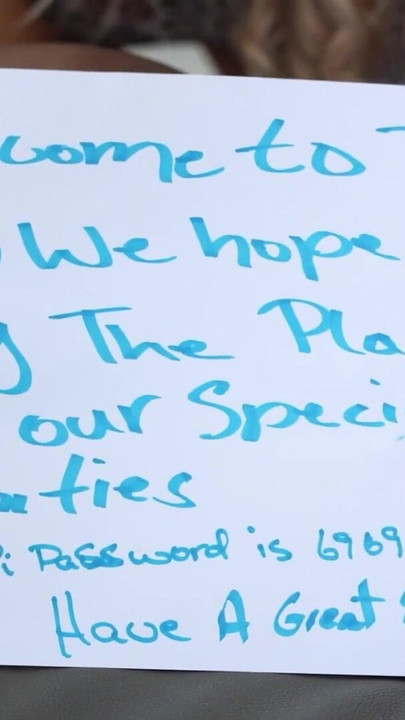 come to T
We hope
g The Pla
our Speci
ties
i Password is 6969
Have A Great